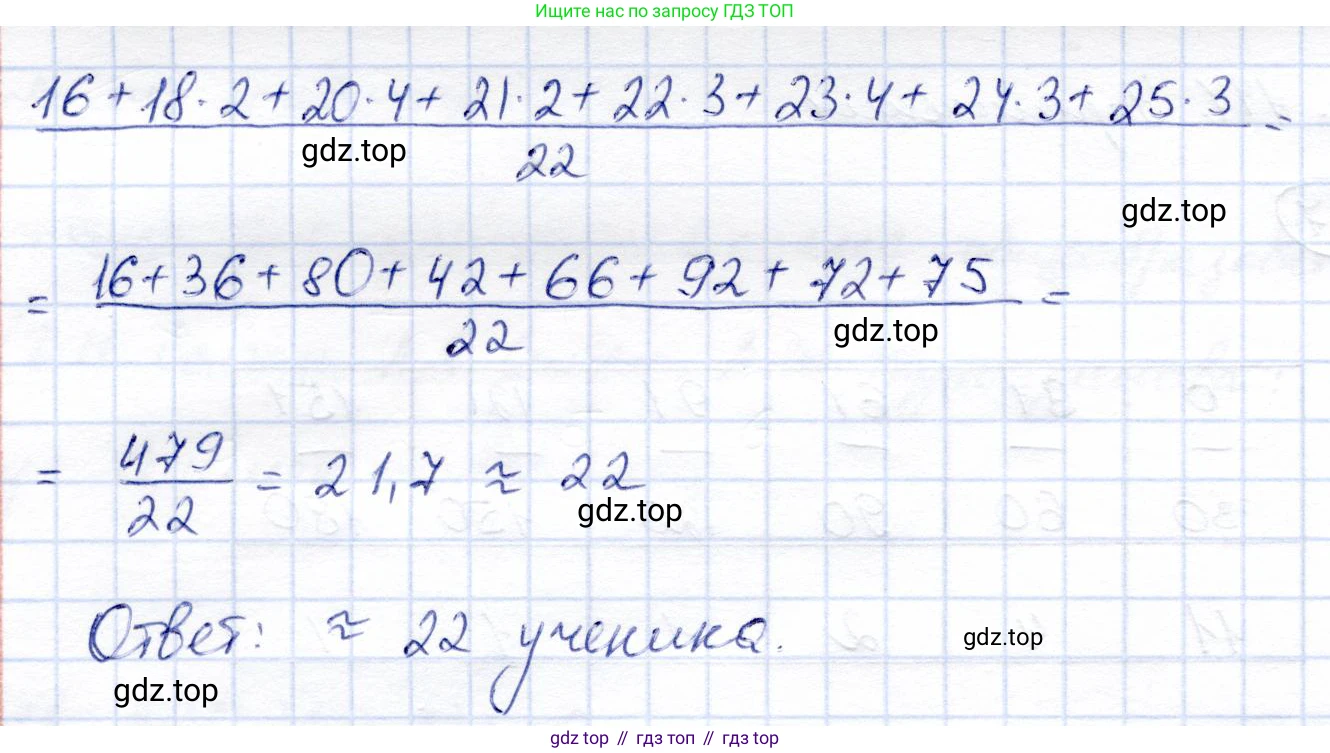 Ищите нас по запросу ГДЗ ТОП
16 + 18 · 2 + 20 · 4 + 21 · 2 + 22 · 3 + 23 · 4 + 24 · 3 + 25 · 3 =
gdz.top
22
gdz.top
= 16 + 36 + 80 + 42 + 66 + 92 + 72 + 75 =
22
gdz.top
= 479 / 22 = 21,7 ≈ 22
gdz.top
Ответ: ≈ 22 ученика.
gdz.top
gdz.top
gdz top // гдз топ // gdz top